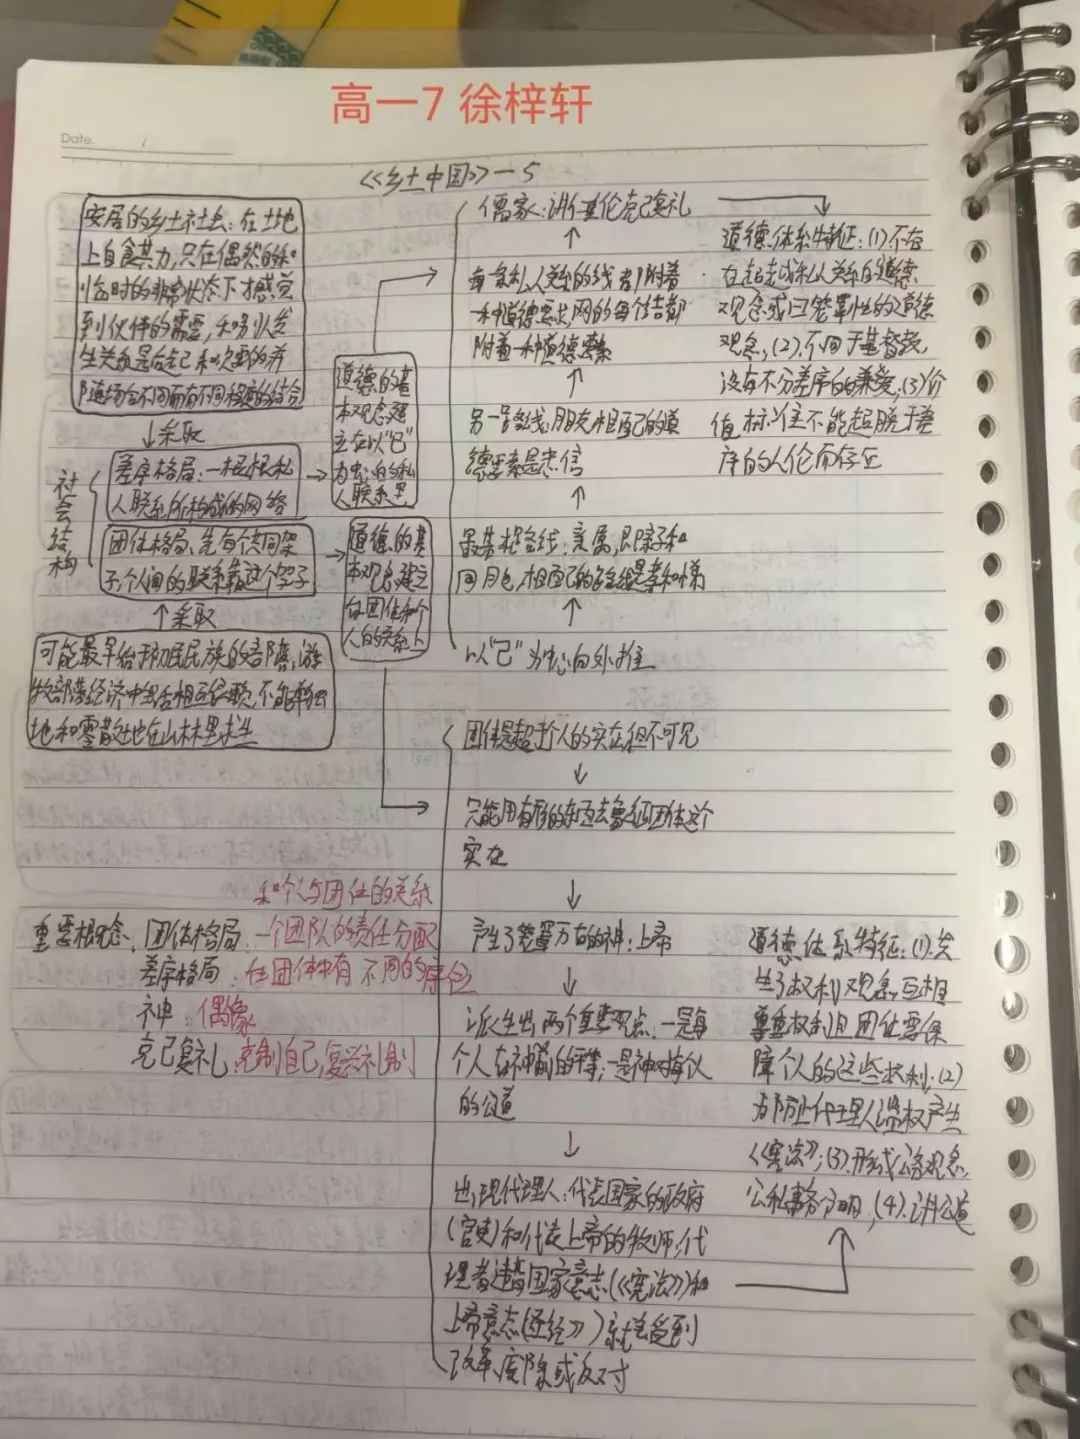 高一7 徐梓轩
Date.
《乡土中国》一5
安居的乡土社会：在土地
上自食其力，只在偶然的和
临时的非常状态下才感觉
到伙伴的需要，和别人发
生关系是后起和次要的并
随场合不同而有不同程度的结合
↓采取
社会结构
差序格局：一根根私
人联系所构成的网络
团体格局、先有个共同架
子个人间的联系靠这个架子
↑采取
可能最早始于初民民族的部落，游
牧部落经济中生活相互依赖，不能单独
地和零散地在山林里求生
道德的基
本观念建
立在以“己”
为中心的私
人联系里
道德的基
本观念建立
在团体和个
人的关系上
儒家：讲仁重伦克己复礼
↑
每一条私人关系的线都附着
一种道德要求，网的每个结都
附着一种道德要素
↑
另一路线，朋友相配的道
德要素是忠信
↑
最基相路线：亲属，即亲子和
同胞，相配的是孝和悌
↑
以“己”为中心向外推
道德体系特征：(1)不存
在超越私人关系的道德
观念或曰笼罩性的道德
观念，(2).不同于基督教，
没有不分差序的兼爱，(3)价
值标准不能超脱于差
序的人伦而存在
团体是超于个人的实在，但不可见
↓
只能用有形的东西去象征团体这个
实在
↓
产生了笼罩万有的神：上帝
↓
派生出两个重要观点，一是每
个人在神前的平等；一是神对每个人
的公道
↓
出现代理人：代表国家的政府
(官吏)和代表上帝的牧师，代
理者违背国家意志(《宪法》)和
上帝意志(圣经》)就会受到
改革、废除或反对
道德体系特征：(1).发
生了权利观念，互相
尊重权利且团体要保
障个人的这些权利；(2)
为防止代理人滥权产生
《宪法》；(3).形成公务观念，
公私事务分明，(4).讲公道
和个人与团体的关系
重要概念、团体格局：一个团队的责任分配
差序格局：在团体中有不同的序位
神：偶像
克己复礼：克制自己，复兴礼制